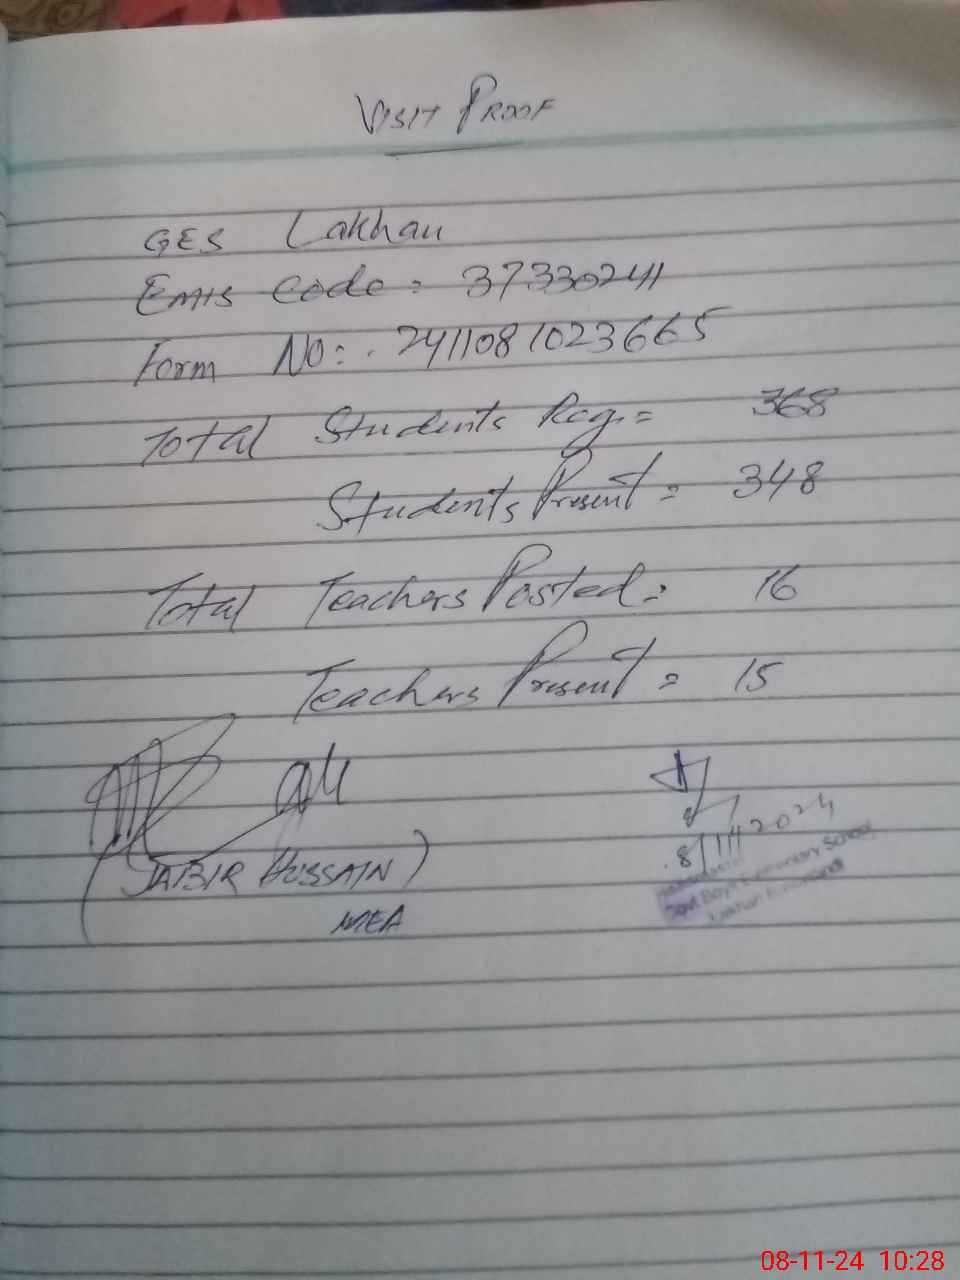 VISIT PROOF
GES Lakhan
EMIS Code: 37330241
Form No:. 2411081023665
Total Students Reg:= 368
Students Present = 348
Total Teachers Posted: 16
Teachers Present = 15
(JABIR HUSSAIN)
MEA
8/11/2024
Govt Boys Elementary School
Lakhan
08-11-24 10:28